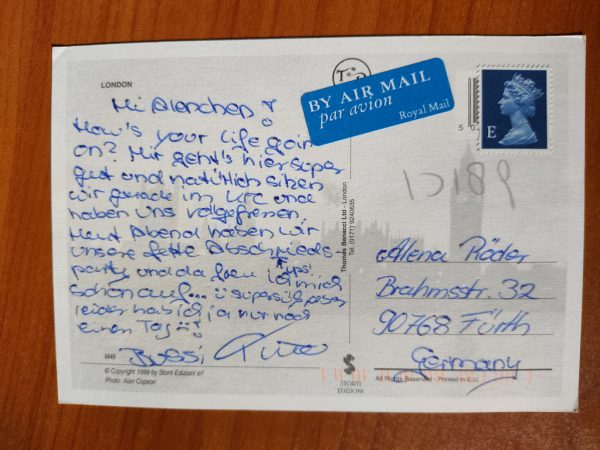 LONDON
Hi Alenchen!
How's your life goin'
on? Mir geht's hier super
gut und natürlich sitzen
wir gerade im KFC und
haben uns vollgefressen.
Heut Abend haben wir
unsere fette Abschieds-
party und da freu ich mich
ups!
schon auf... 
leider hab ich ja nur noch
einen Tag
Bussi
M46
© Copyright 1999 by Storti Edizioni srl
Photo: Alan Copson
Thomas Benacci Ltd - London
Tel. (0171) 9240635
STORTI
EDIZIONI
BY AIR MAIL
par avion
Royal Mail
E
5 0
Alena Röder
Brahmsstr. 32
90768 Fürth
Germany
All Rights Reserved - Printed in E.U.